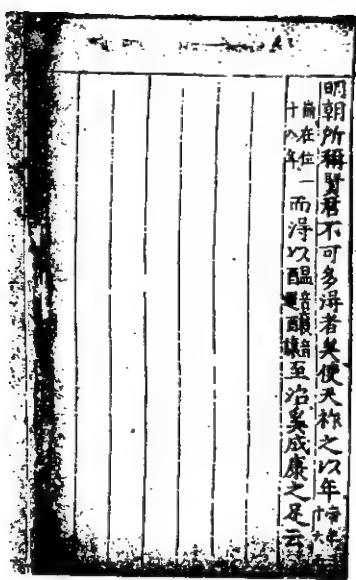 明朝所稱賢君不可多得者矣使天祚之以年十六
歲在位一十八年而得以醞釀至治奚成康之足云